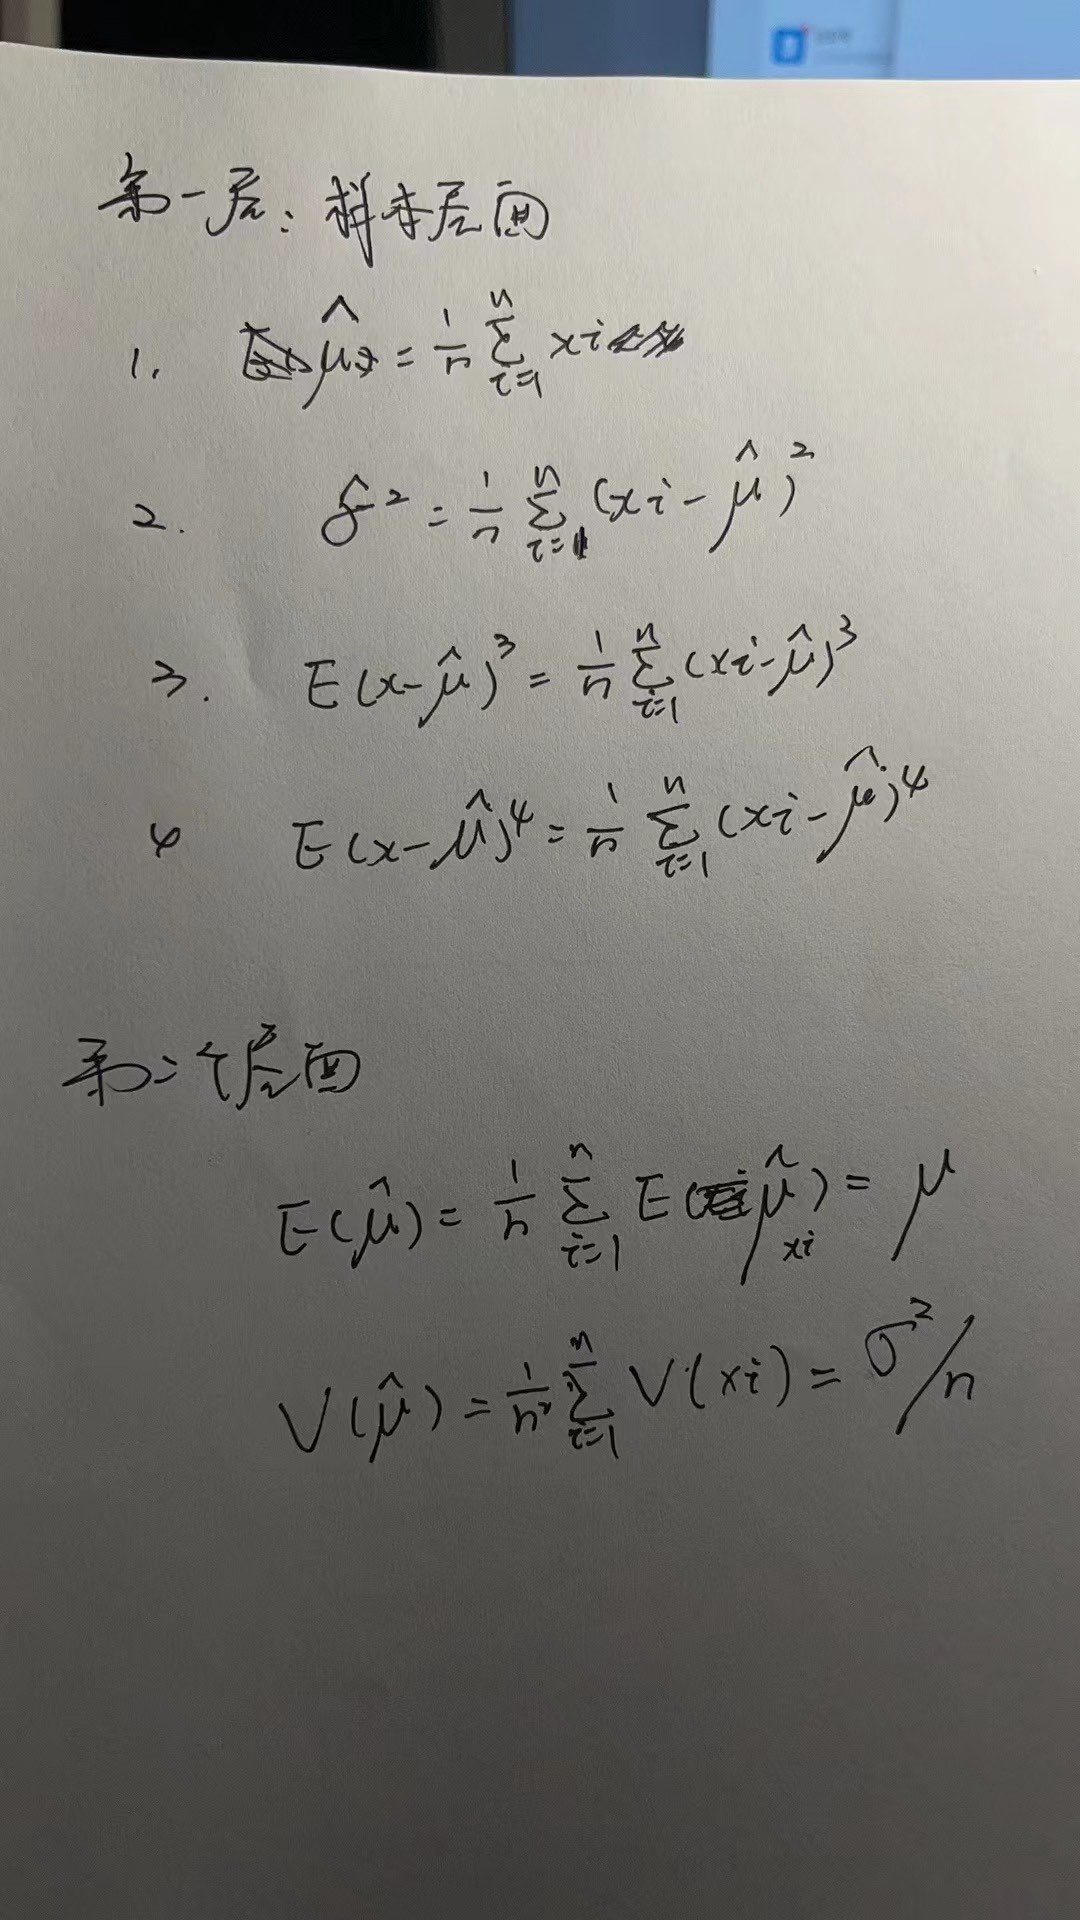 第一层：样本层面
1. μ̂ = 1/n Σ_{i=1}^{n} xi
2. σ̂² = 1/n Σ_{i=1}^{n} (xi - μ̂)²
3. E(x-μ̂)³ = 1/n Σ_{i=1}^{n} (xi-μ̂)³
4 E(x-μ̂)⁴ = 1/n Σ_{i=1}^{n} (xi-μ̂)⁴
第二个层面
E(μ̂) = 1/n Σ_{i=1}^{n} E(μ̂) = μ
xi
V(μ̂) = 1/n² Σ_{i=1}^{n} V(xi) = σ²/n